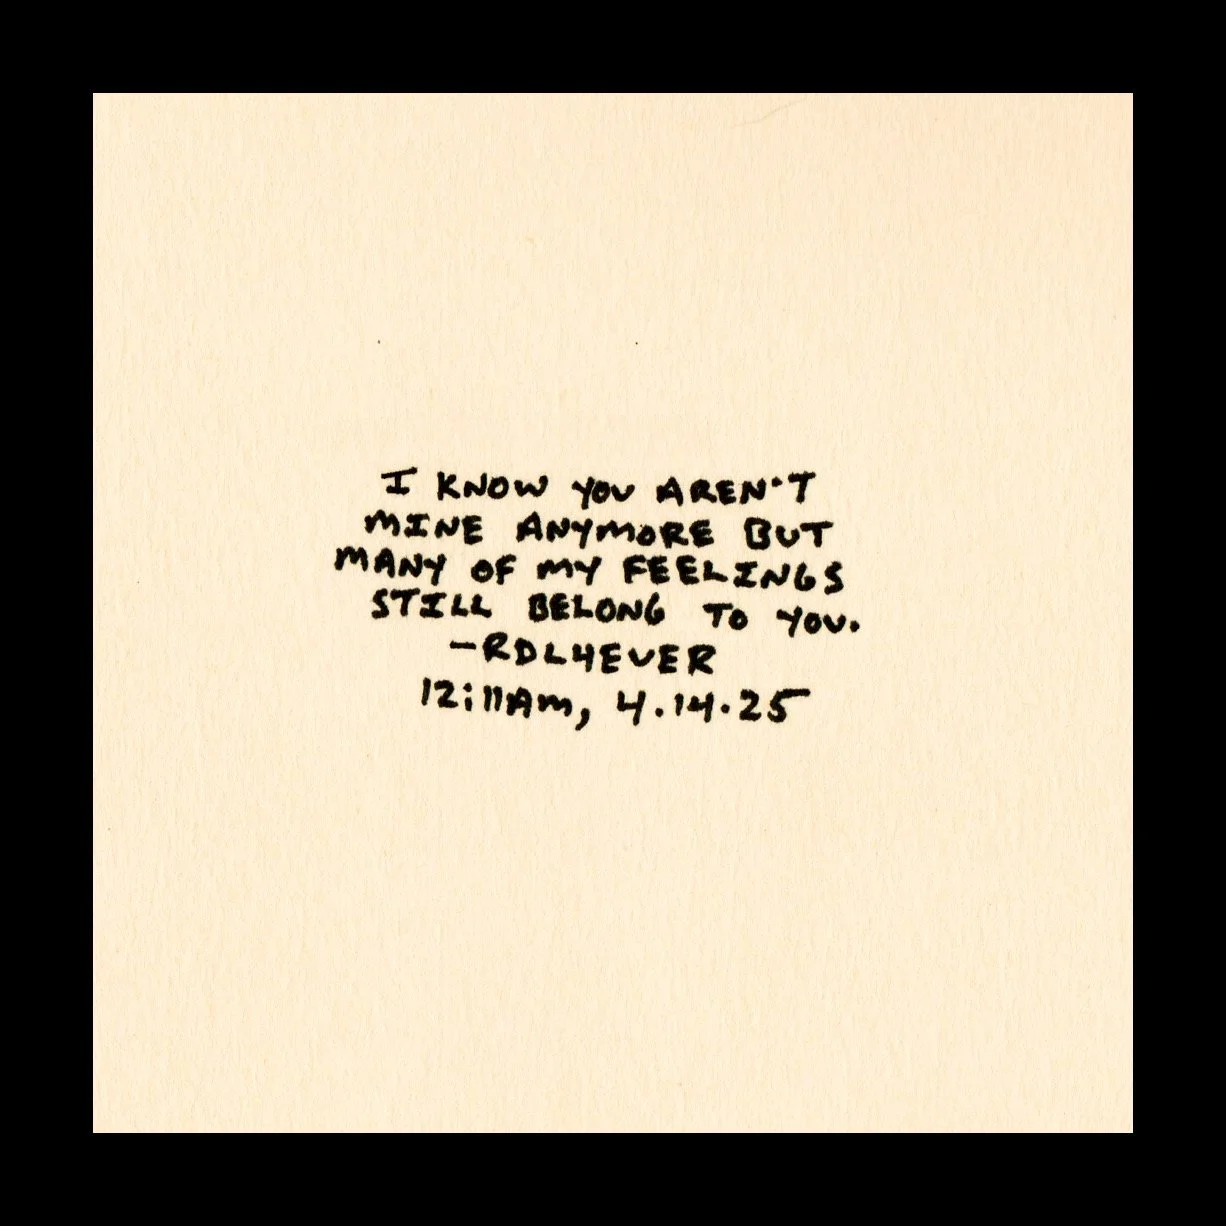 I KNOW YOU AREN'T
MINE ANYMORE BUT
MANY OF MY FEELINGS
STILL BELONG TO YOU.
-RDL4EVER
12:11AM, 4.14.25